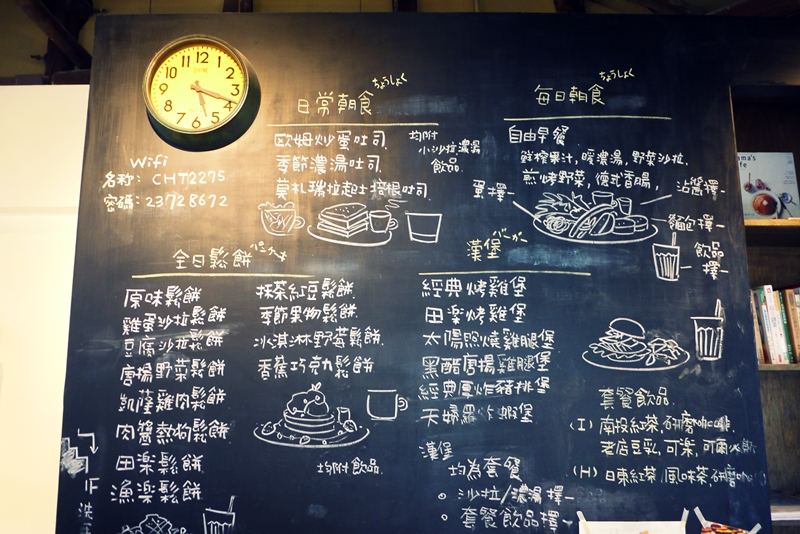 12
1
2
3
4
5
6
7
8
9
10
11
Wifi
名称: CHT2275
密碼: 23728672
日常朝食 ちょうしょく
歐姆炒蛋吐司.
季節濃湯吐司.
莫札瑞拉起士培根吐司.
均附
小沙拉濃湯
飲品.
每日朝食 ちょうしょく
自由早餐
鮮榨果汁, 暖濃湯, 野菜沙拉.
煎烤野菜, 德式香腸,
蛋擇一
沾醬擇一
麵包擇一
飲品
擇一
全日鬆餅
原味鬆餅
雞蛋沙拉鬆餅
豆腐沙拉鬆餅
唐揚野菜鬆餅
凱薩雞肉鬆餅
肉醬熱狗鬆餅
田楽鬆餅
漁楽鬆餅
抹茶紅豆鬆餅.
季節果物鬆餅.
冰淇淋野莓鬆餅.
香蕉巧克力鬆餅
均附飲品.
漢堡 バーガー
經典烤雞堡
田楽烤雞堡
太陽照燒雞腿堡
黑醋唐揚雞腿堡
經典厚炸豬排堡
天婦羅炸蝦堡
漢堡
均為套餐
沙拉/濃湯擇一
套餐飲品擇一
套餐飲品
(I) 南投紅茶, 研磨咖啡,
老店豆乳, 可楽,
(H) 日東紅茶, 風味茶, 研磨
1F